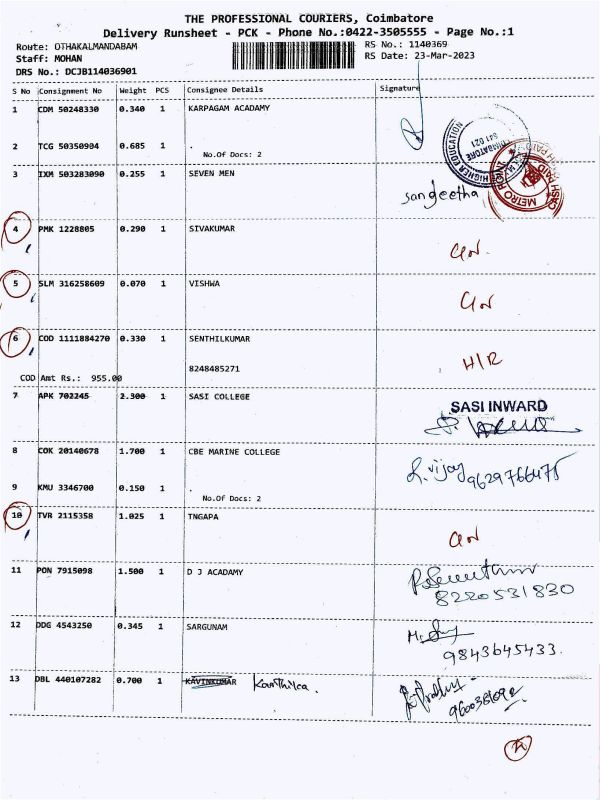 THE PROFESSIONAL COURIERS, Coimbatore
Delivery Runsheet - PCK - Phone No.:0422-3505555 - Page No.:1
Route: OTHAKALMANDABAM RS No.: 1140369
Staff: MOHAN RS Date: 23-Mar-2023
DRS No.: DCJB114036901
S No Consignment No Weight PCS Consignee Details Signature
1 CDM 50248330 0.340 1 KARPAGAM ACADAMY
HIGHER EDUCATION
641 021
2 TCG 50350904 0.685 1 .
No.Of Docs: 2
METRO POINT
CASH PAID
3 IXM 503283090 0.255 1 SEVEN MEN sangeetha
4 PMK 1228805 0.290 1 SIVAKUMAR
5 SLM 316258609 0.070 1 VISHWA
6 COD 1111884270 0.330 1 SENTHILKUMAR H/R
8248485271
COD Amt Rs.: 955.00
7 APK 702245 2.300 1 SASI COLLEGE SASI INWARD
8 COK 20140678 1.700 1 CBE MARINE COLLEGE R. vijay
9629766475
9 KMU 3346700 0.150 1 .
No.Of Docs: 2
10 TVR 2115358 1.025 1 TNGAPA
11 PON 7915098 1.500 1 D J ACADAMY
8220531830
12 DDG 4543250 0.345 1 SARGUNAM
9843645433.
13 DBL 440107282 0.700 1 KAVINKUMAR